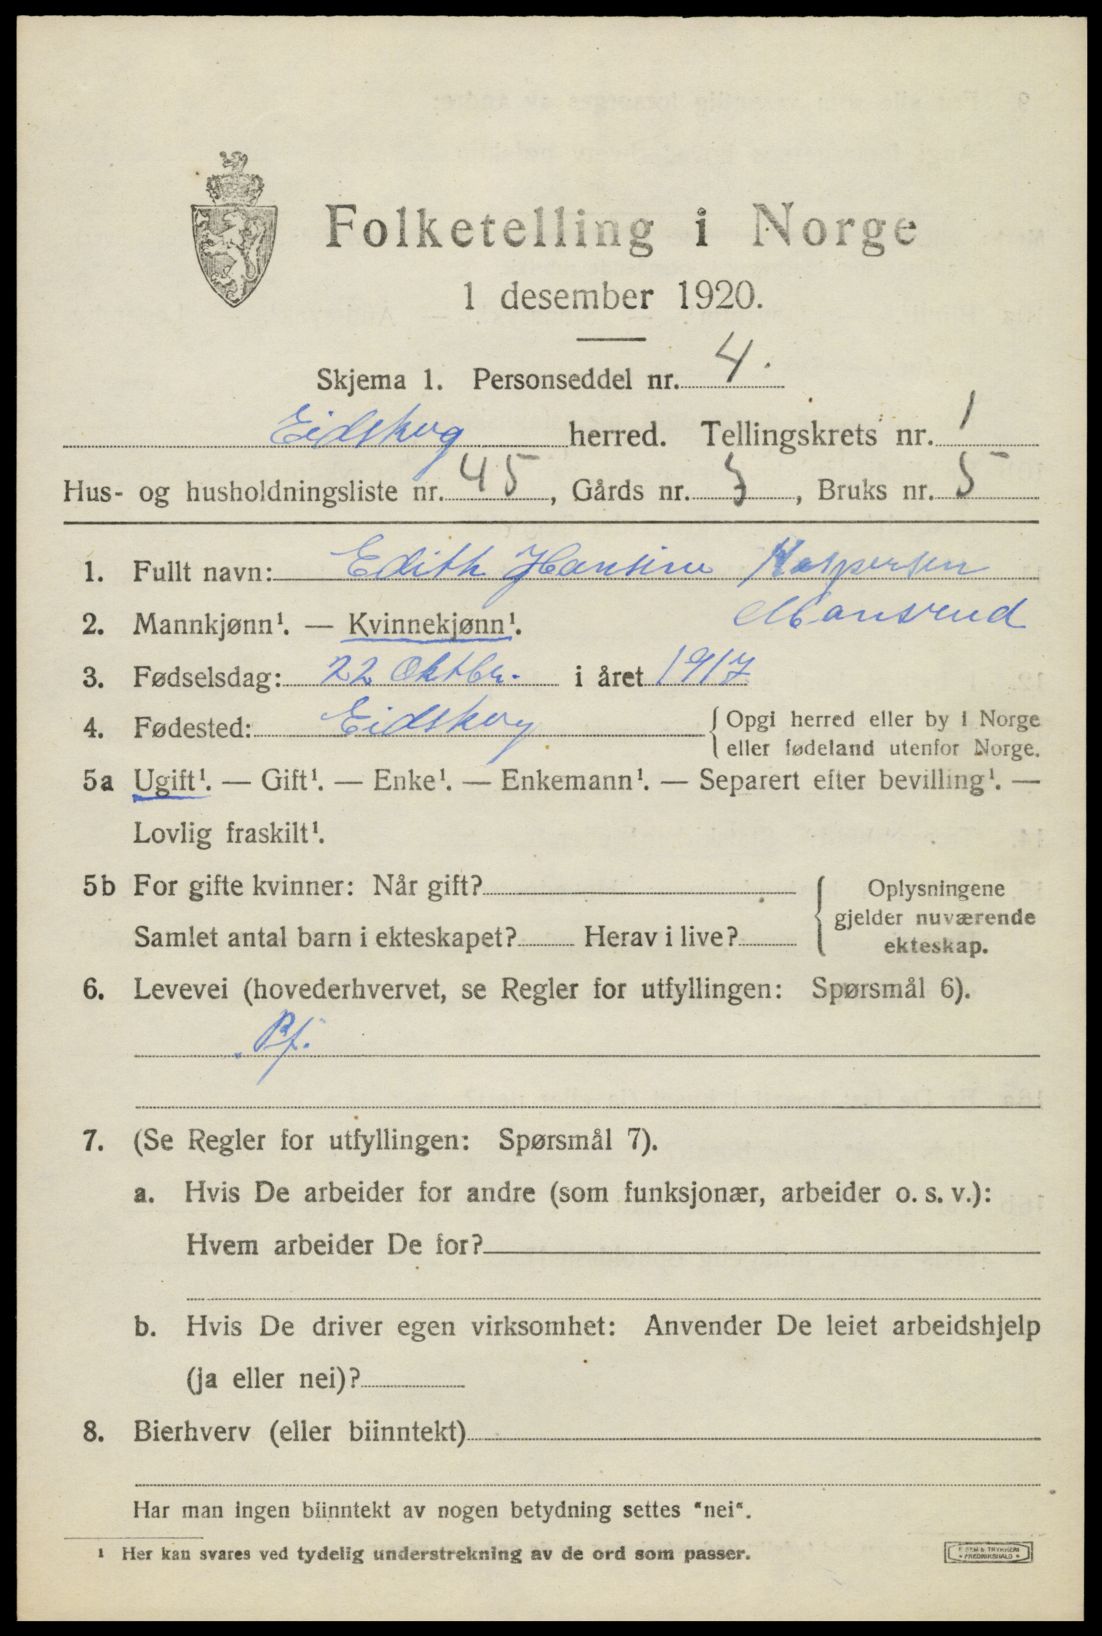 Folketelling i Norge
1 desember 1920.
Skjema 1. Personseddel nr. 4.
Eidskog herred. Tellingskrets nr. 1
Hus- og husholdningsliste nr. 45, Gårds nr. 3, Bruks nr. 5
1. Fullt navn: Edith Hansine Kaspersen
2. Mannkjønn¹. — Kvinnekjønn¹.
3. Fødselsdag: 22 Oktbr. i året 1917
4. Fødested: Eidskog {Opgi herred eller by i Norge
eller fødeland utenfor Norge.
5a Ugift¹. — Gift¹. — Enke¹. — Enkemann¹. — Separert efter bevilling¹. —
Lovlig fraskilt¹.
5b For gifte kvinner: Når gift? { Oplysningene
gjelder nuværende
Samlet antal barn i ekteskapet? Herav i live? ekteskap.
6. Levevei (hovederhvervet, se Regler for utfyllingen: Spørsmål 6).
7. (Se Regler for utfyllingen: Spørsmål 7).
a. Hvis De arbeider for andre (som funksjonær, arbeider o. s. v.):
Hvem arbeider De for?
b. Hvis De driver egen virksomhet: Anvender De leiet arbeidshjelp
(ja eller nei)?
8. Bierhverv (eller biinntekt)
Har man ingen biinntekt av nogen betydning settes "nei".
¹ Her kan svares ved tydelig understrekning av de ord som passer.